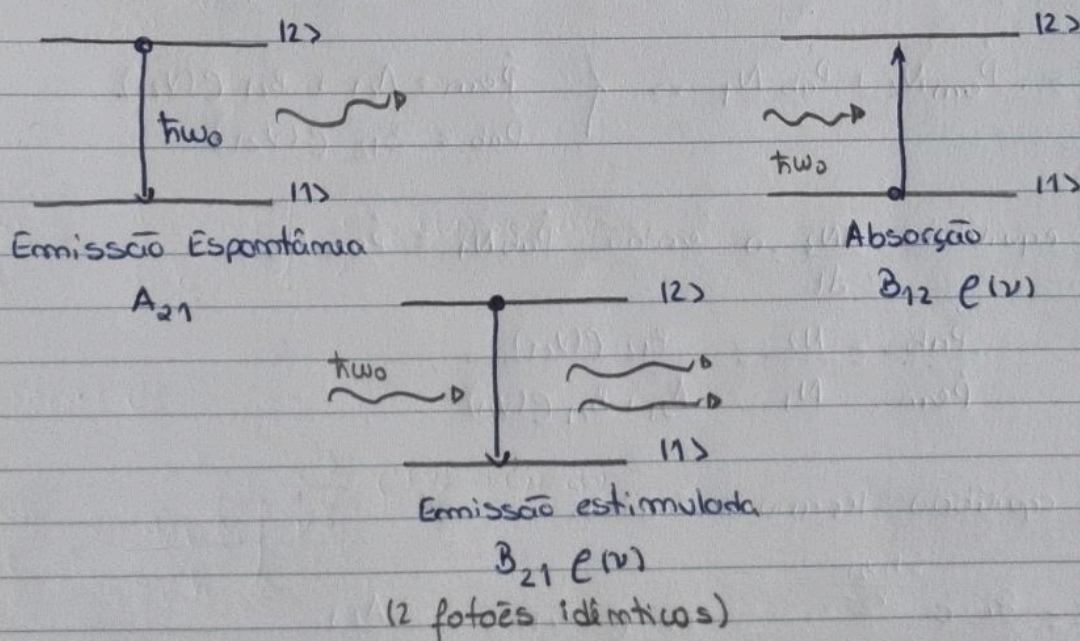 |2>
ħω₀
|1>
Emissão Espontânea
A₂₁
|2>
ħω₀
|1>
Absorção
B₁₂ ρ(ν)
|2>
ħω₀
|1>
Emissão estimulada
B₂₁ ρ(ν)
(2 fotões idênticos)